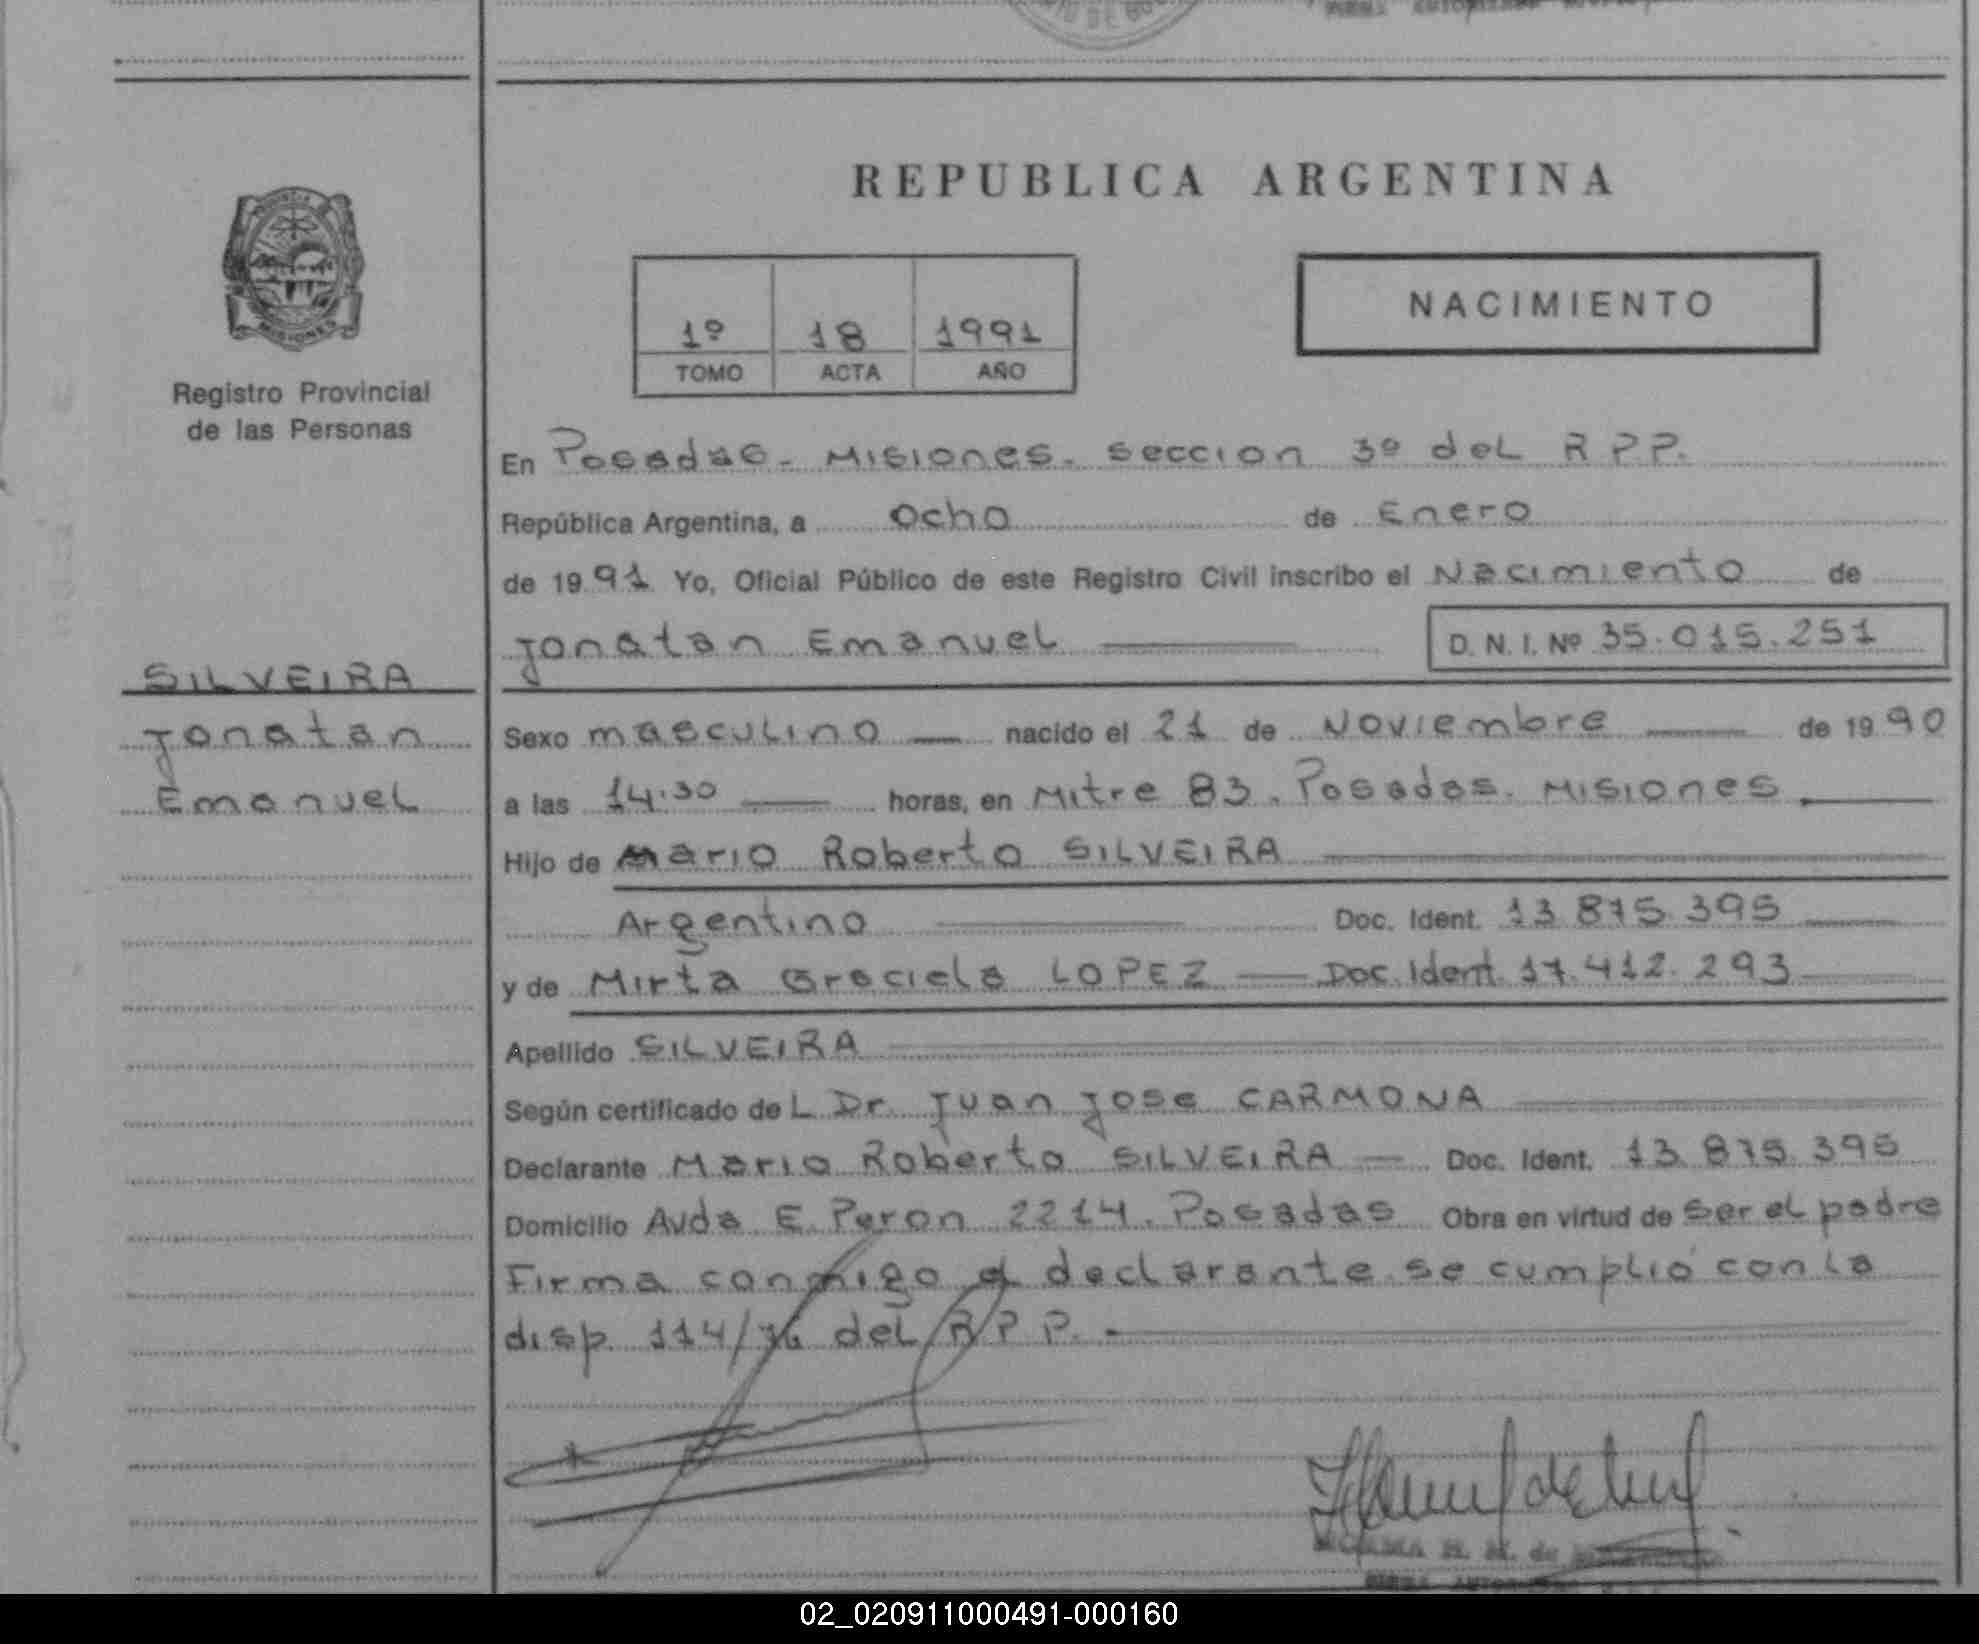 REPUBLICA ARGENTINA
MISIONES
Registro Provincial
de las Personas
1º 18 1991
TOMO ACTA AÑO
NACIMIENTO
En Posadas - Misiones. seccion 3º del R P P.
República Argentina, a ocho de Enero
de 19 91 Yo, Oficial Público de este Registro Civil inscribo el Nacimiento de
Jonatan Emanuel D. N. I. Nº 35.015.251
SILVEIRA
Jonatan
Emanuel
Sexo masculino nacido el 21 de Noviembre de 19 90
a las 14.30 horas, en Mitre 83. Posadas. Misiones.
Hijo de Mario Roberto SILVEIRA
Argentino Doc. Ident. 13.875.395
y de Mirta Graciela LOPEZ Doc. Ident. 17.412.293
Apellido SILVEIRA
Según certificado de L Dr. Juan Jose CARMONA
Declarante Mario Roberto SILVEIRA Doc. Ident. 13.875.395
Domicilio Avda E. Peron 2214. Posadas Obra en virtud de ser el padre
Firma conmigo el declarante se cumplió con la
disp. 114/76 del R P P. -
02_020911000491-000160